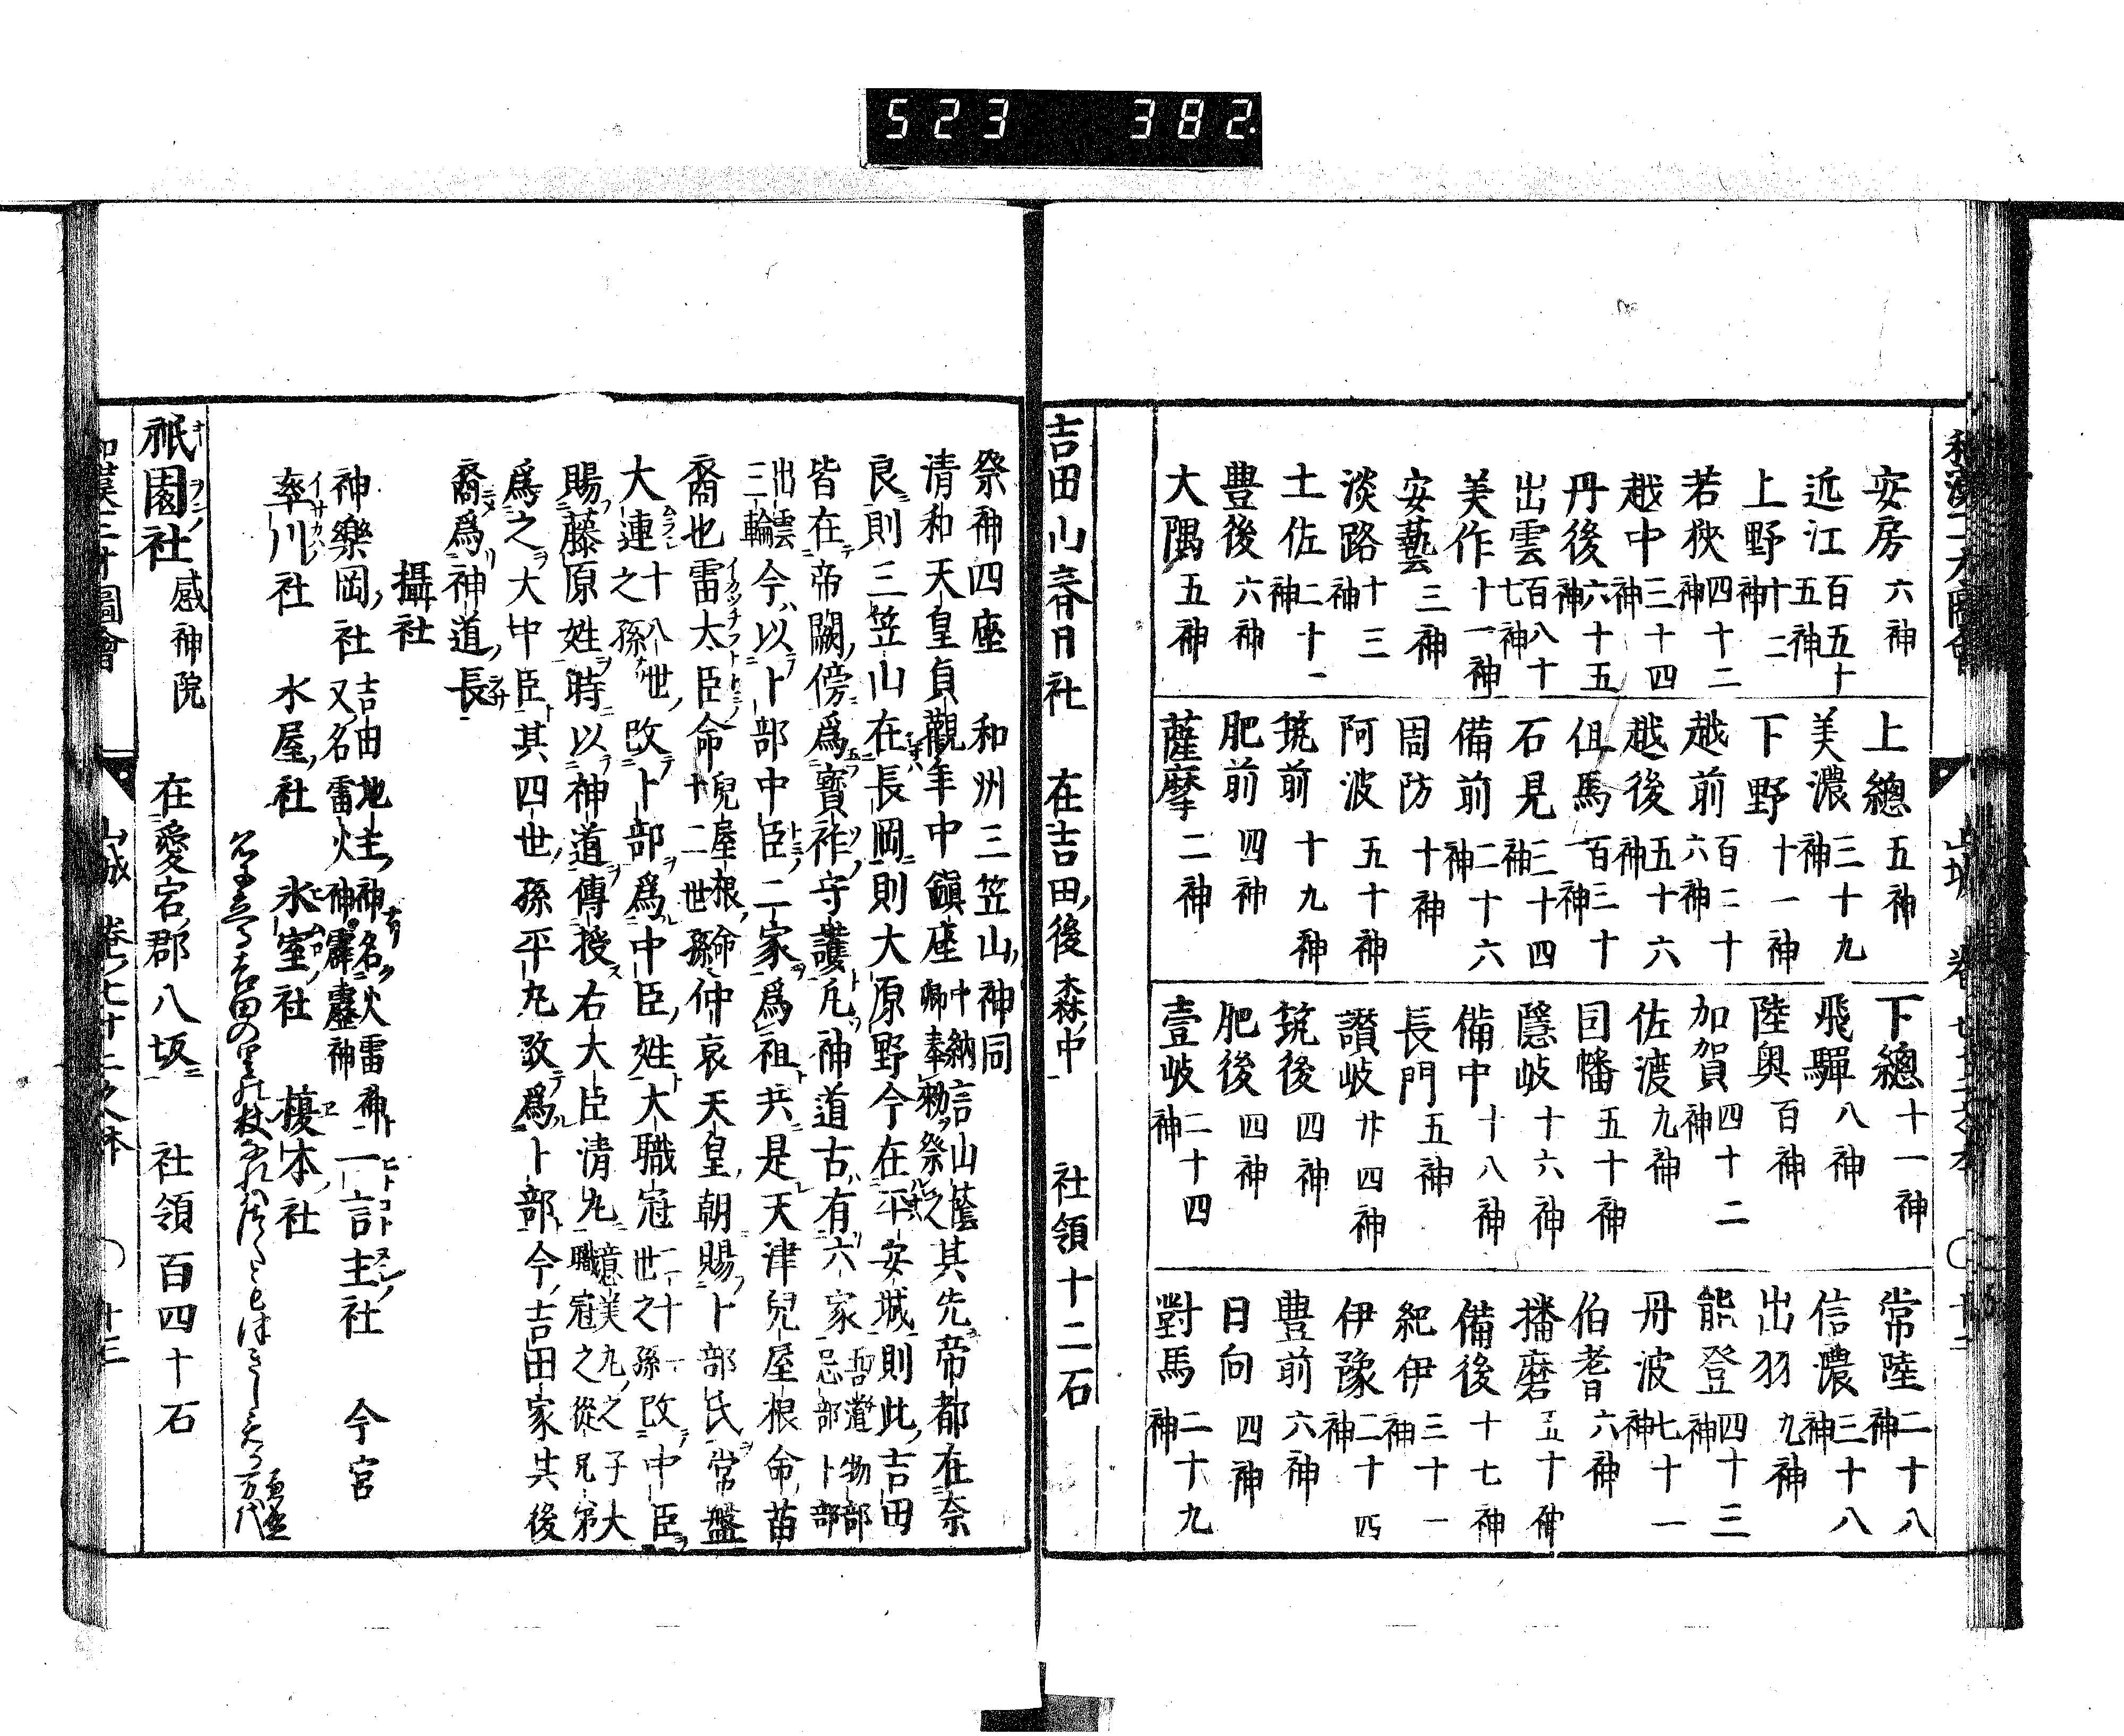 523 382
安房 六神
上總 五神
下總 十一神
常陸 二十八神
近江 百五十五神
美濃 三十九神
飛驒 八神
信濃 三十八神
上野 十二神
下野 十一神
陸奥 百神
出羽 九神
若狹 四十二神
越前 百二十六神
加賀 四十二神
能登 四十三神
越中 三十四神
越後 五十六神
佐渡 九神
丹波 七十一神
丹後 六十五神
但馬 百三十一神
因幡 五十神
伯耆 六神
出雲 百八十七神
石見 三十四神
隱岐 十六神
播磨 五十神
美作 十一神
備前 二十六神
備中 十八神
備後 十七神
安藝 三神
周防 十神
長門 五神
紀伊 三十一神
淡路 十三神
阿波 五十神
讃岐 廿四神
伊豫 二十四神
土佐 二十一神
筑前 十九神
筑後 四神
豊前 六神
豊後 六神
肥前 四神
肥後 四神
日向 四神
大隅 五神
薩摩 二神
壹岐 二十四神
對馬 二十九神
吉田山春日社 在吉田後森中 社領十二石
祭神四座 和州三笠山神同
清和天皇貞觀年中鎭座 中納言山蔭卿奉勅祭之 其先帝都在奈
良則三笠山在長岡則大原野今在平安城則此吉田
皆在帝闕傍爲寳祚守護凡神道古有六家 吾瀧物部忌部卜部
出雲三輪 今以卜部中臣二家爲祖共是天津兒屋根命苗
裔也雷大臣命 兒屋根命十二世孫 仲哀天皇朝賜卜部氏常盤
大連 十八世之孫 改卜部爲中臣姓大職冠 二十一世之孫 改中臣
賜藤原姓時以神道傳授右大臣清丸 意美丸之子大職冠之從兄弟
爲之大中臣其四世孫平丸改爲卜部今吉田家其後
裔爲神道長
攝社
神樂岡社 吉田地主神名火雷神又名雷火神霹靂神 一言主社 今宮
率川社 水屋社 氷室社 榎本社
祇園社 感神院 在愛宕郡八坂 社領百四十石